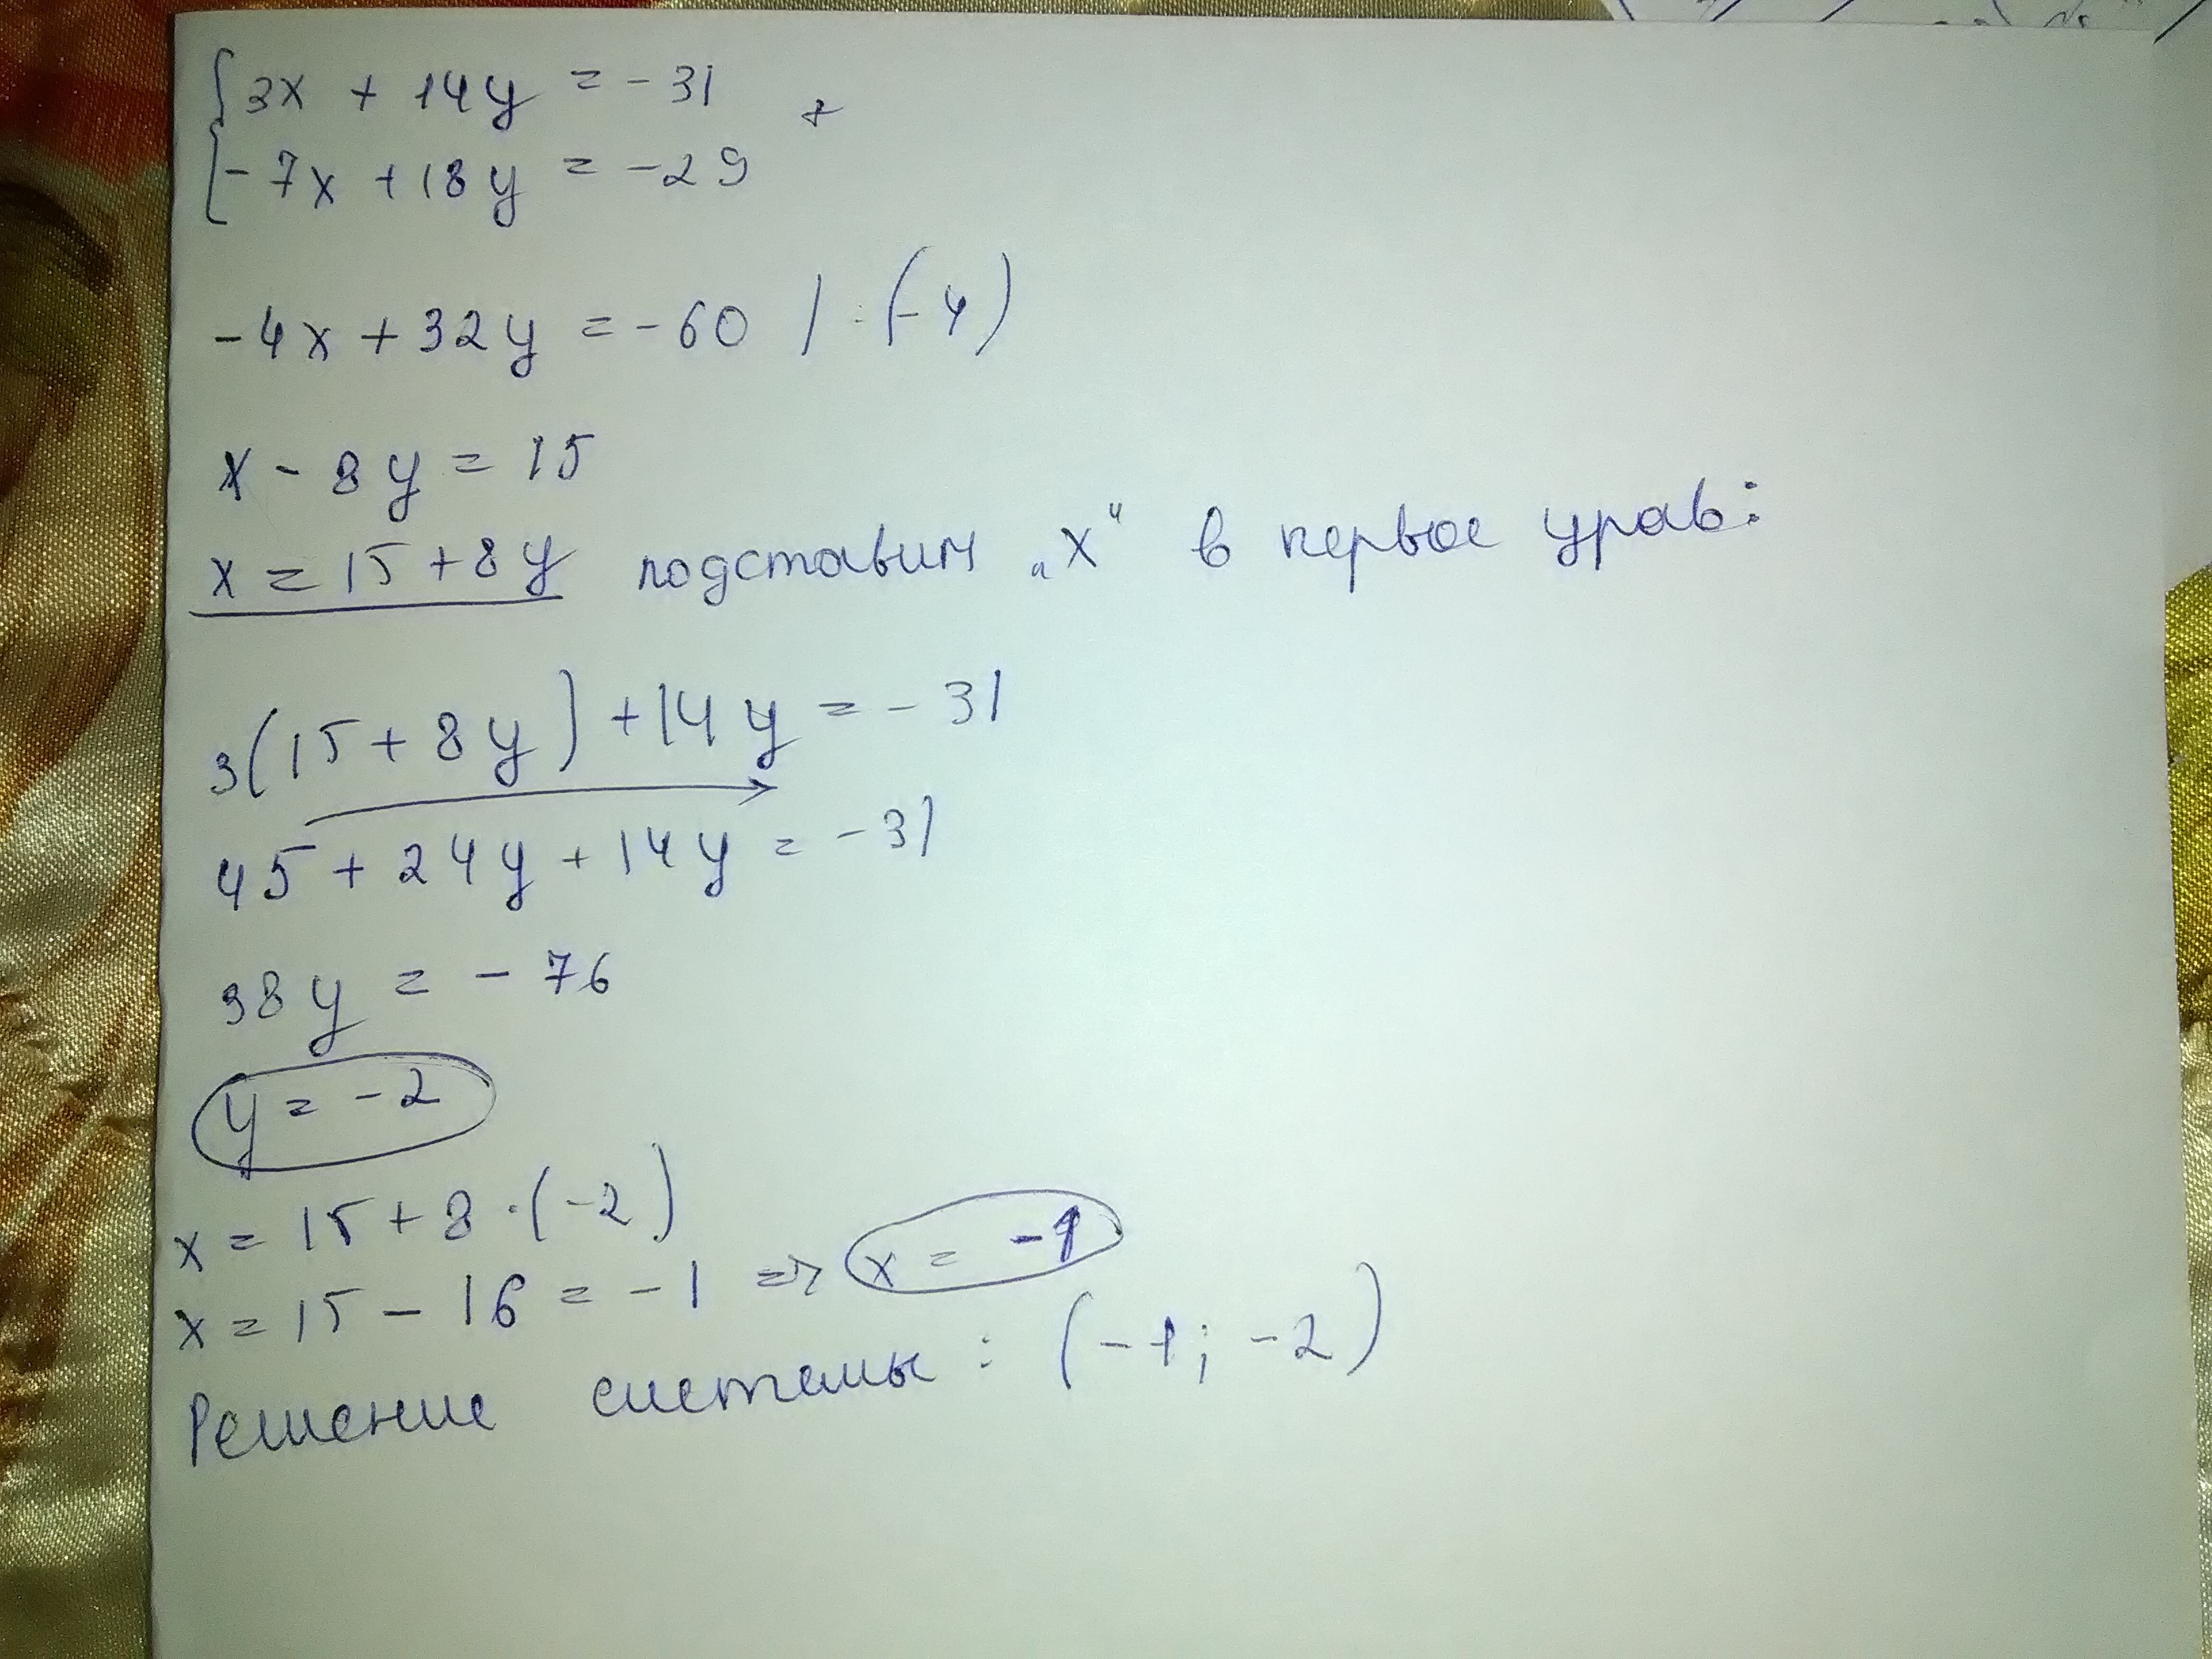 {3x + 14y = -31 +
-7x + 18y = -29
-4x + 32y = -60 / : (-4)
x - 8y = 15
x = 15 + 8y подставим „x“ в первое урав:
3(15 + 8y) + 14y = -31
45 + 24y + 14y = -31
38y = -76
y = -2
x = 15 + 8 · (-2)
x = 15 - 16 = -1 => x = -1
Решение системы : (-1; -2)